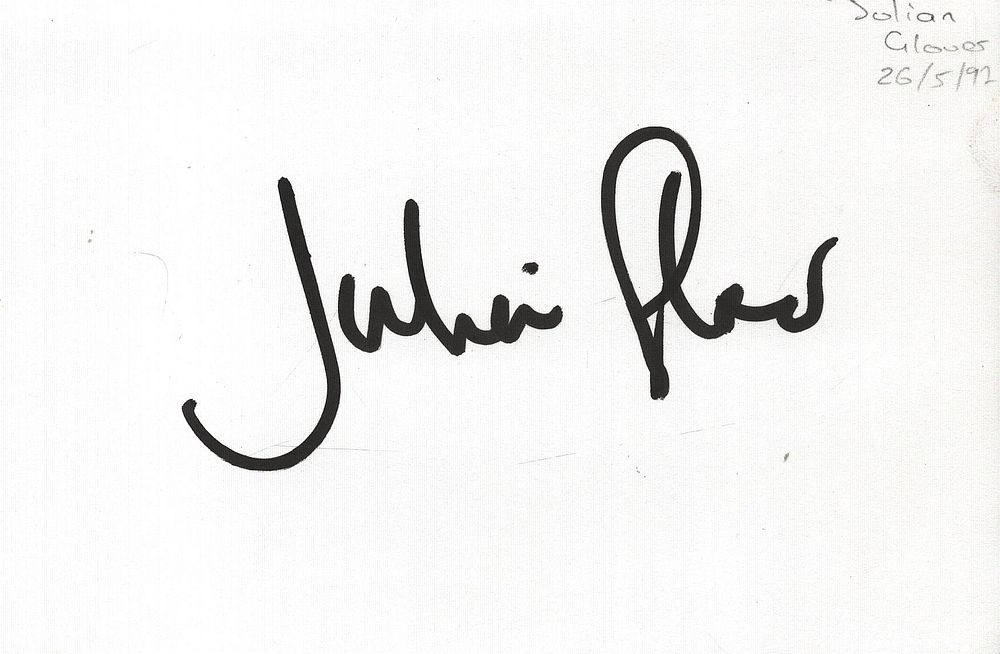 Julian
Glover
26/5/92
Julian Glover